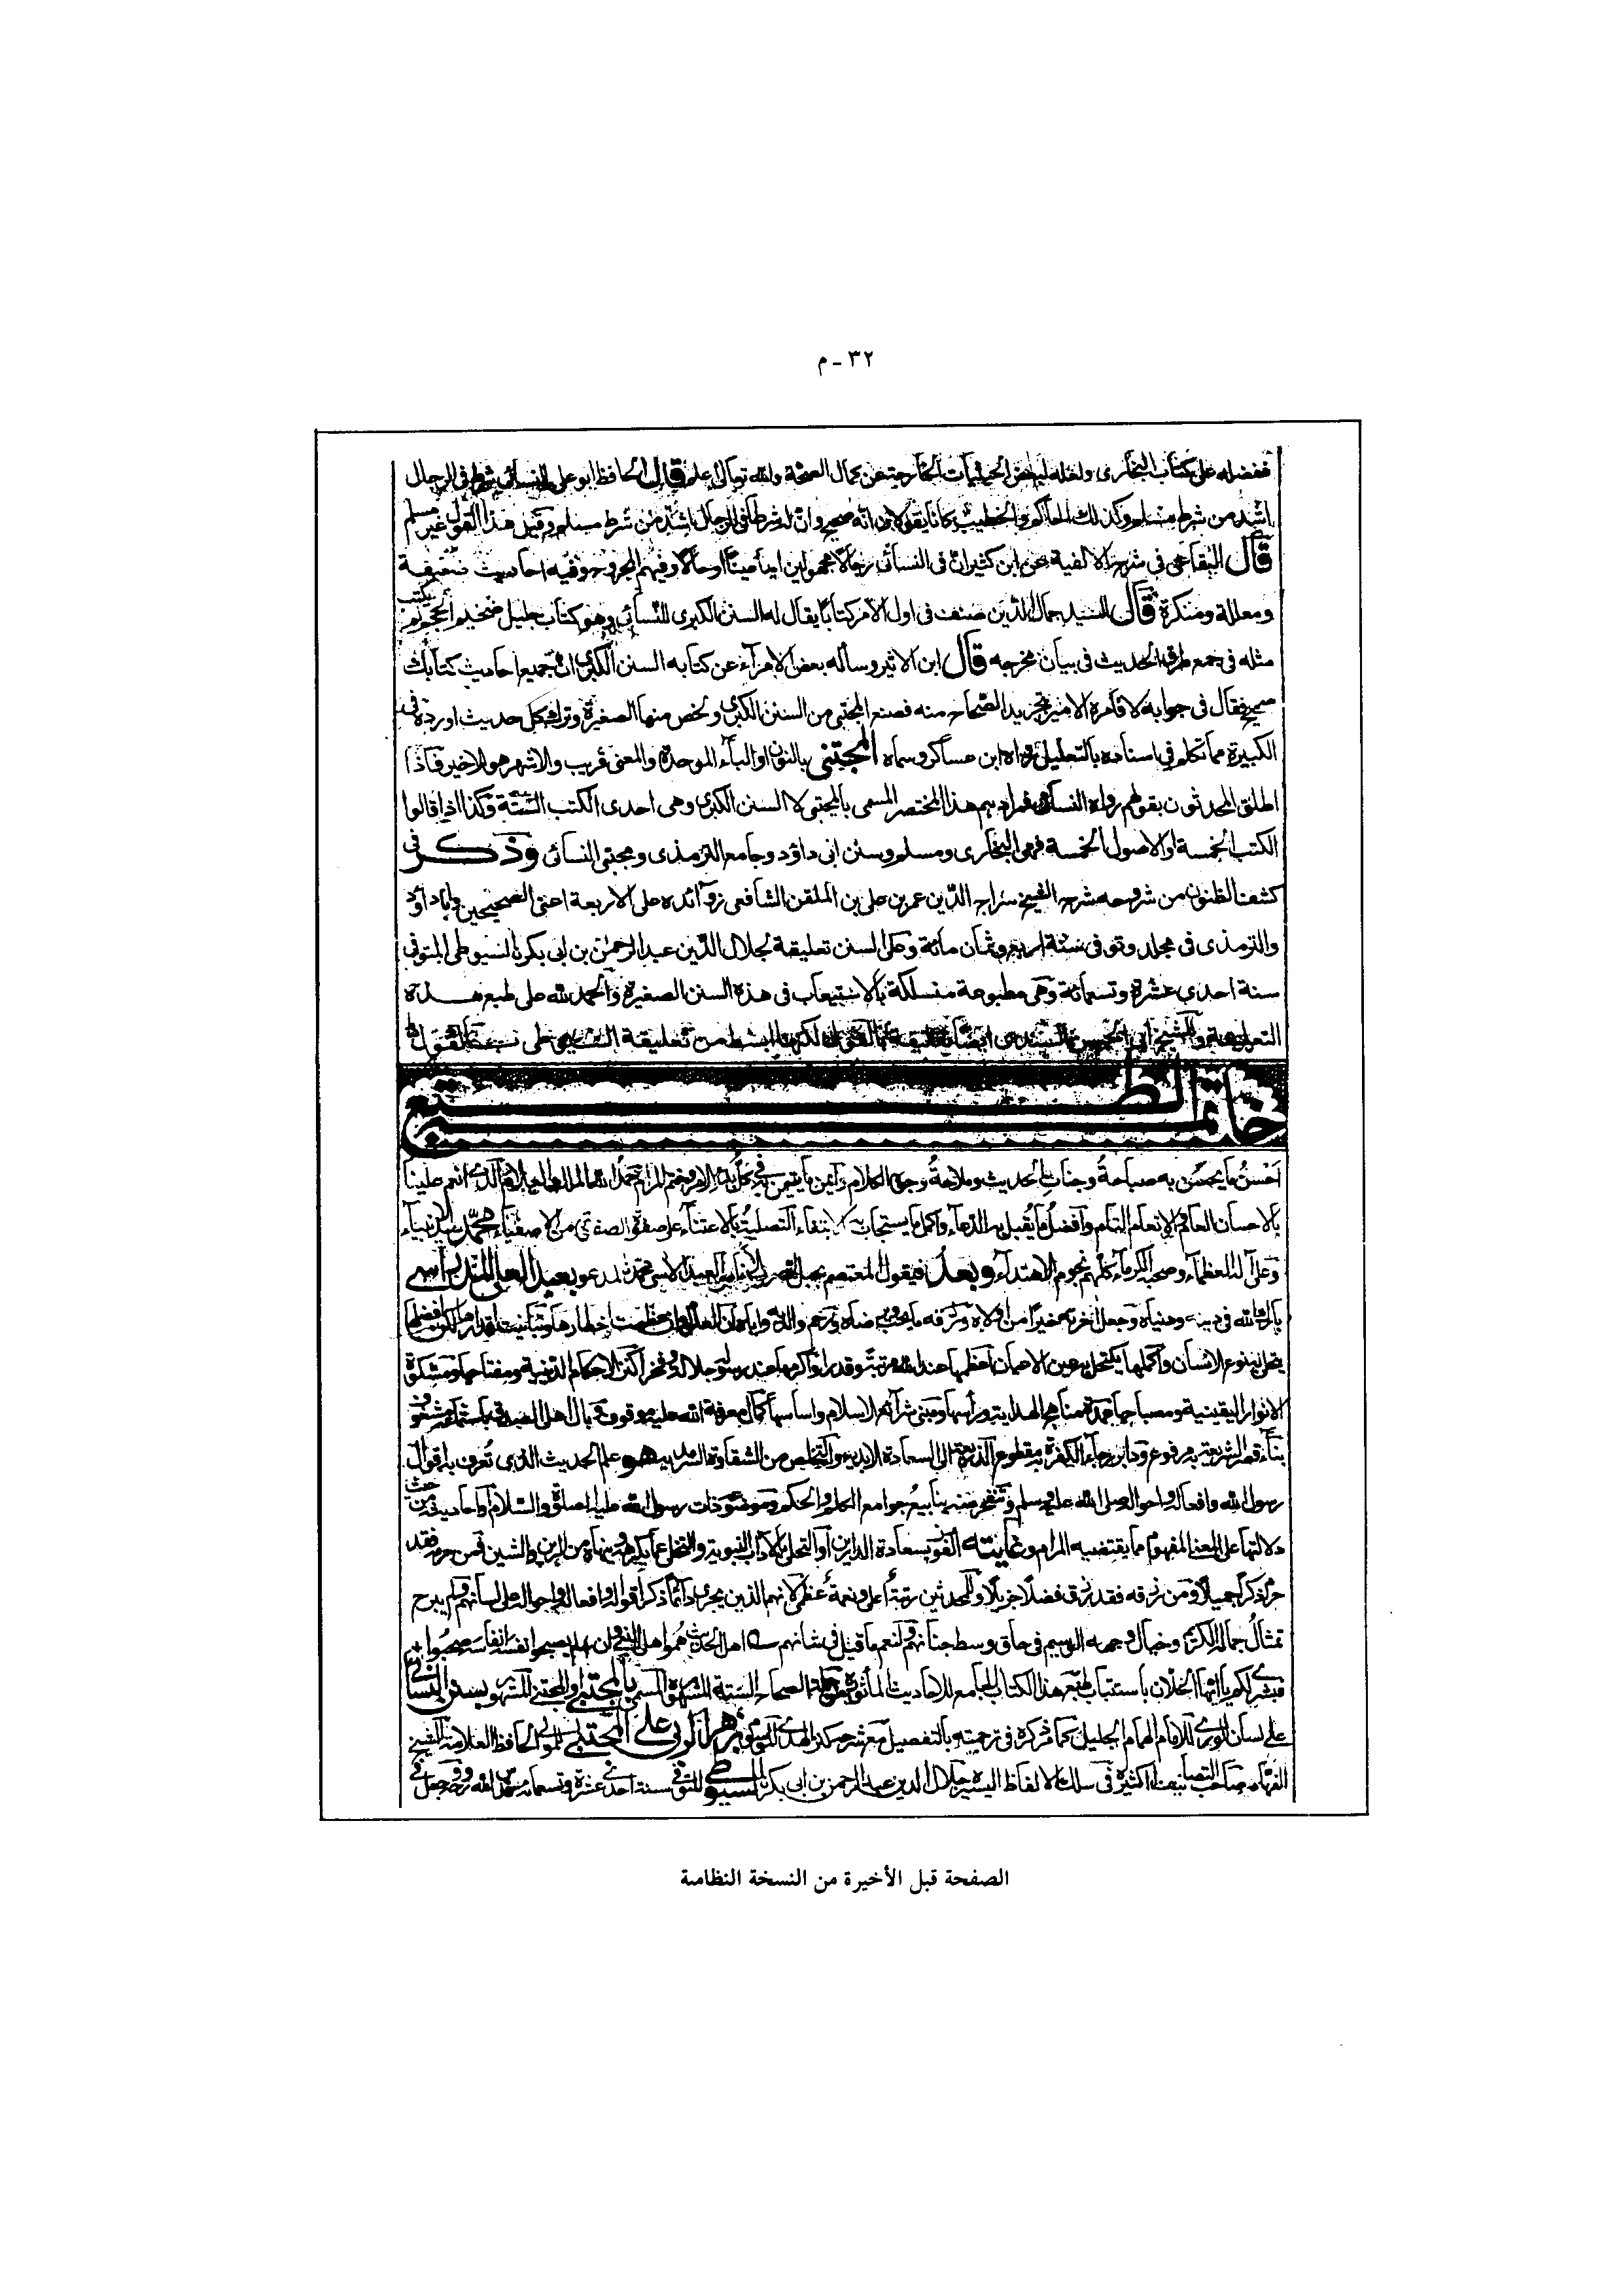 ٣٢ - م
ففضله على كتاب البخارى ولعله لبعض الحيثيات الخارجة عن كمال الصحة والله تعالى اعلم قال الحافظ ابو على للنسائى شرط فى الرجال
اشد من شرط مسلم وكذلك الحاكم والخطيب كانا يقولان انه صحيح وان له شرطا فى الرجال اشد من شرط مسلم وقيل هذا القول غير مسلم
قال البقاعى فى شرح الالفية عن ابن كثير ان فى النسائى رجالا مجهولين اما عينا او حالا وفيهم المجروح وفيه احاديث ضعيفة
ومعللة ومنكرة قال السيد جمال الدين صنف فى اول الامر كتابا يقال له السنن الكبرى للنسائى وهو كتاب جليل ضخيم الحجم لم يكتب
مثله فى جمع طرق الحديث فى بيان مخرجه قال ابن الاثير وسأله بعض الامراء عن كتابه السنن الكبرى ان جميع احاديث كتابك
صحيح فقال فى جوابه لا فامره الامير بتجريد الصحاح منه فصنع المجتبى من السنن الكبرى ولخص منها الصغيرة وترك كل حديث اورده فى
الكبيرة مما تكلم فى اسناده بالتعليل رواه ابن عساكر وسماه المجتنى بالنون او الباء الموحدة والمعنى قريب والاشهر هو الاخير فاذا
اطلق المحدثون بقولهم رواه النسائى فمرادهم هذا المختصر المسمى بالمجتبى لا السنن الكبرى وهى احدى الكتب الستة وكذا اذا قالوا
الكتب الخمسة او الاصول الخمسة فهى البخارى ومسلم وسنن ابى داؤد وجامع الترمذى ومجتبى النسائى وذكر فى
كشف الظنون من شروحه شرح الشيخ سراج الدين عمر بن على بن الملقن الشافعى زوائده على الاربعة اعنى الصحيحين واباداؤد
والترمذى فى مجلد وتوفى سنة اربع وثمان مائة وعلى السنن تعليقة لجلال الدين عبد الرحمن بن ابى بكر السيوطى المتوفى
سنة احدى عشرة وتسعمائة وهى مطبوعة منسلكة بالاستيعاب فى هذه السنن الصغيرة والحمد لله على طبع هذه
خاتمة الطبع
احسن ما يحسن به صباحة وجنات الحديث وملاحة وجوه الكلام
بالاحسان العام والانعام التام وافضل ما يقبل به الدعاء واكمل ما يستجاب به محمد سيد الانبياء
وعلى آله العظماء وصحبه الكرماء كلهم نجوم الاهتداء وبعد فيقول المعتصم بحبل بعبد العلى المدراسى
الله فى دينه ودنياه وجعل اخرته خيرا من اولاه
نوع الانسان واكملها عين الاحسان اعظمها عند الله مرتبة وقدرا واكرمها عند رسوله جلالة وفخرا كنز الاحكام الدينية ومفتاحها ومشكوة
الانوار اليقينية ومصباحها عمدة مناهج الهداية ورأسها ومبنى شرائع الاسلام واساسها كمال معرفة الله عليه موقوف
بناء قصر الشريعة به مرفوع الى السعادة الابدية والتخلص من الشقاوة السرمدية هو علم الحديث الذى تعرف به اقوال
رسول الله وافعاله واحواله صلى الله عليه وسلم وتنفجر منه ينابيع جوامع الكلم والحكم وموضوعه ذات رسول الله عليه الصلوة والسلام واحاديثه من حيث
دلالتها على المعنى المفهوم مما يقتضيه المرام وغايته الفوز بسعادة الدارين او التحلى بالآداب النبوية والتخلى عما يكرهه وينهاه من الرين والشين فمن حرمه فقد
حرم ذكرا جميلا ومن رزقه فقد رزق فضلا جزيلا وللمحدثين رتبة اعلى ونعمة عظمى لانهم الذين يجرى دائما ذكر اقواله وافعاله واحواله على لسانهم ولم يبرح
تمثال جماله الكريم وخيال وجهه الوسيم فى حاق وسط جنانهم ولنعم ما قيل فى شانهم اهل الحديث هموا اهل النبى وان لم يصحبوا نفسه انفاسه صحبوا
فبشرى لكم يا ايها الخلان باستتباب طبع هذا الكتاب الجامع للاحاديث المأثورة الصحاح الستة المشهورة المسمى بالمجتبى والمجتنى المشتهر بسنن النسائى
على لسان الورى للامام الهمام الجليل كما مر ذكره فى ترجمته بالتفصيل مع شرحه زهر الربى على المجتبى للمولى الحافظ العلامة الشيخ
الفهامة صاحب التصانيف الكثيرة فى سلك الالفاظ اليسيرة جلال الدين عبد الرحمن بن ابى بكر السيوطى المتوفى سنة احدى عشرة وتسعمائة
الصفحة قبل الأخيرة من النسخة النظامية